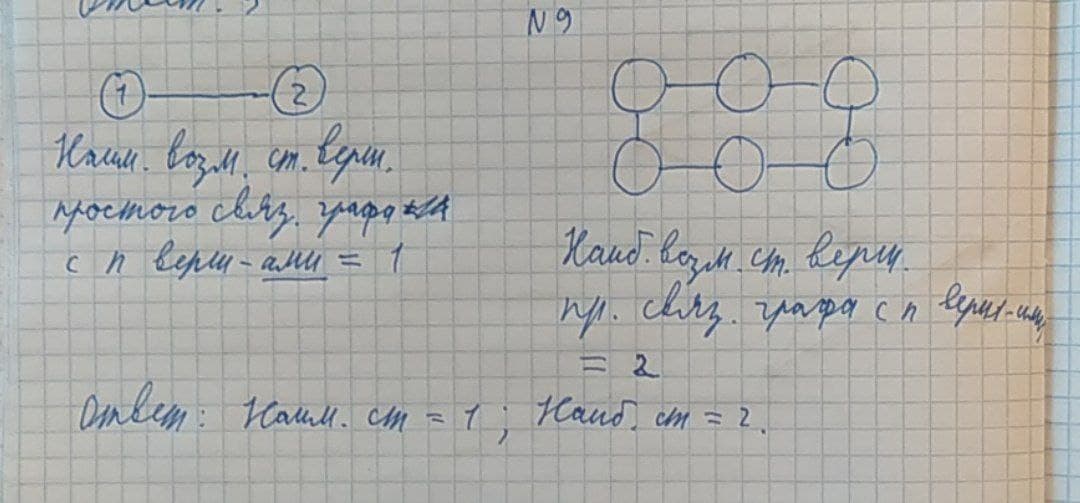 Ответ: 3
N 9
1
2
Наим. возм. ст. верш.
простого связ. графа
с n верш-ами = 1
Наиб. возм. ст. верш.
пр. связ. графа с n верш-ами
= 2
Ответ: Наим. ст = 1 ; Наиб. ст = 2.